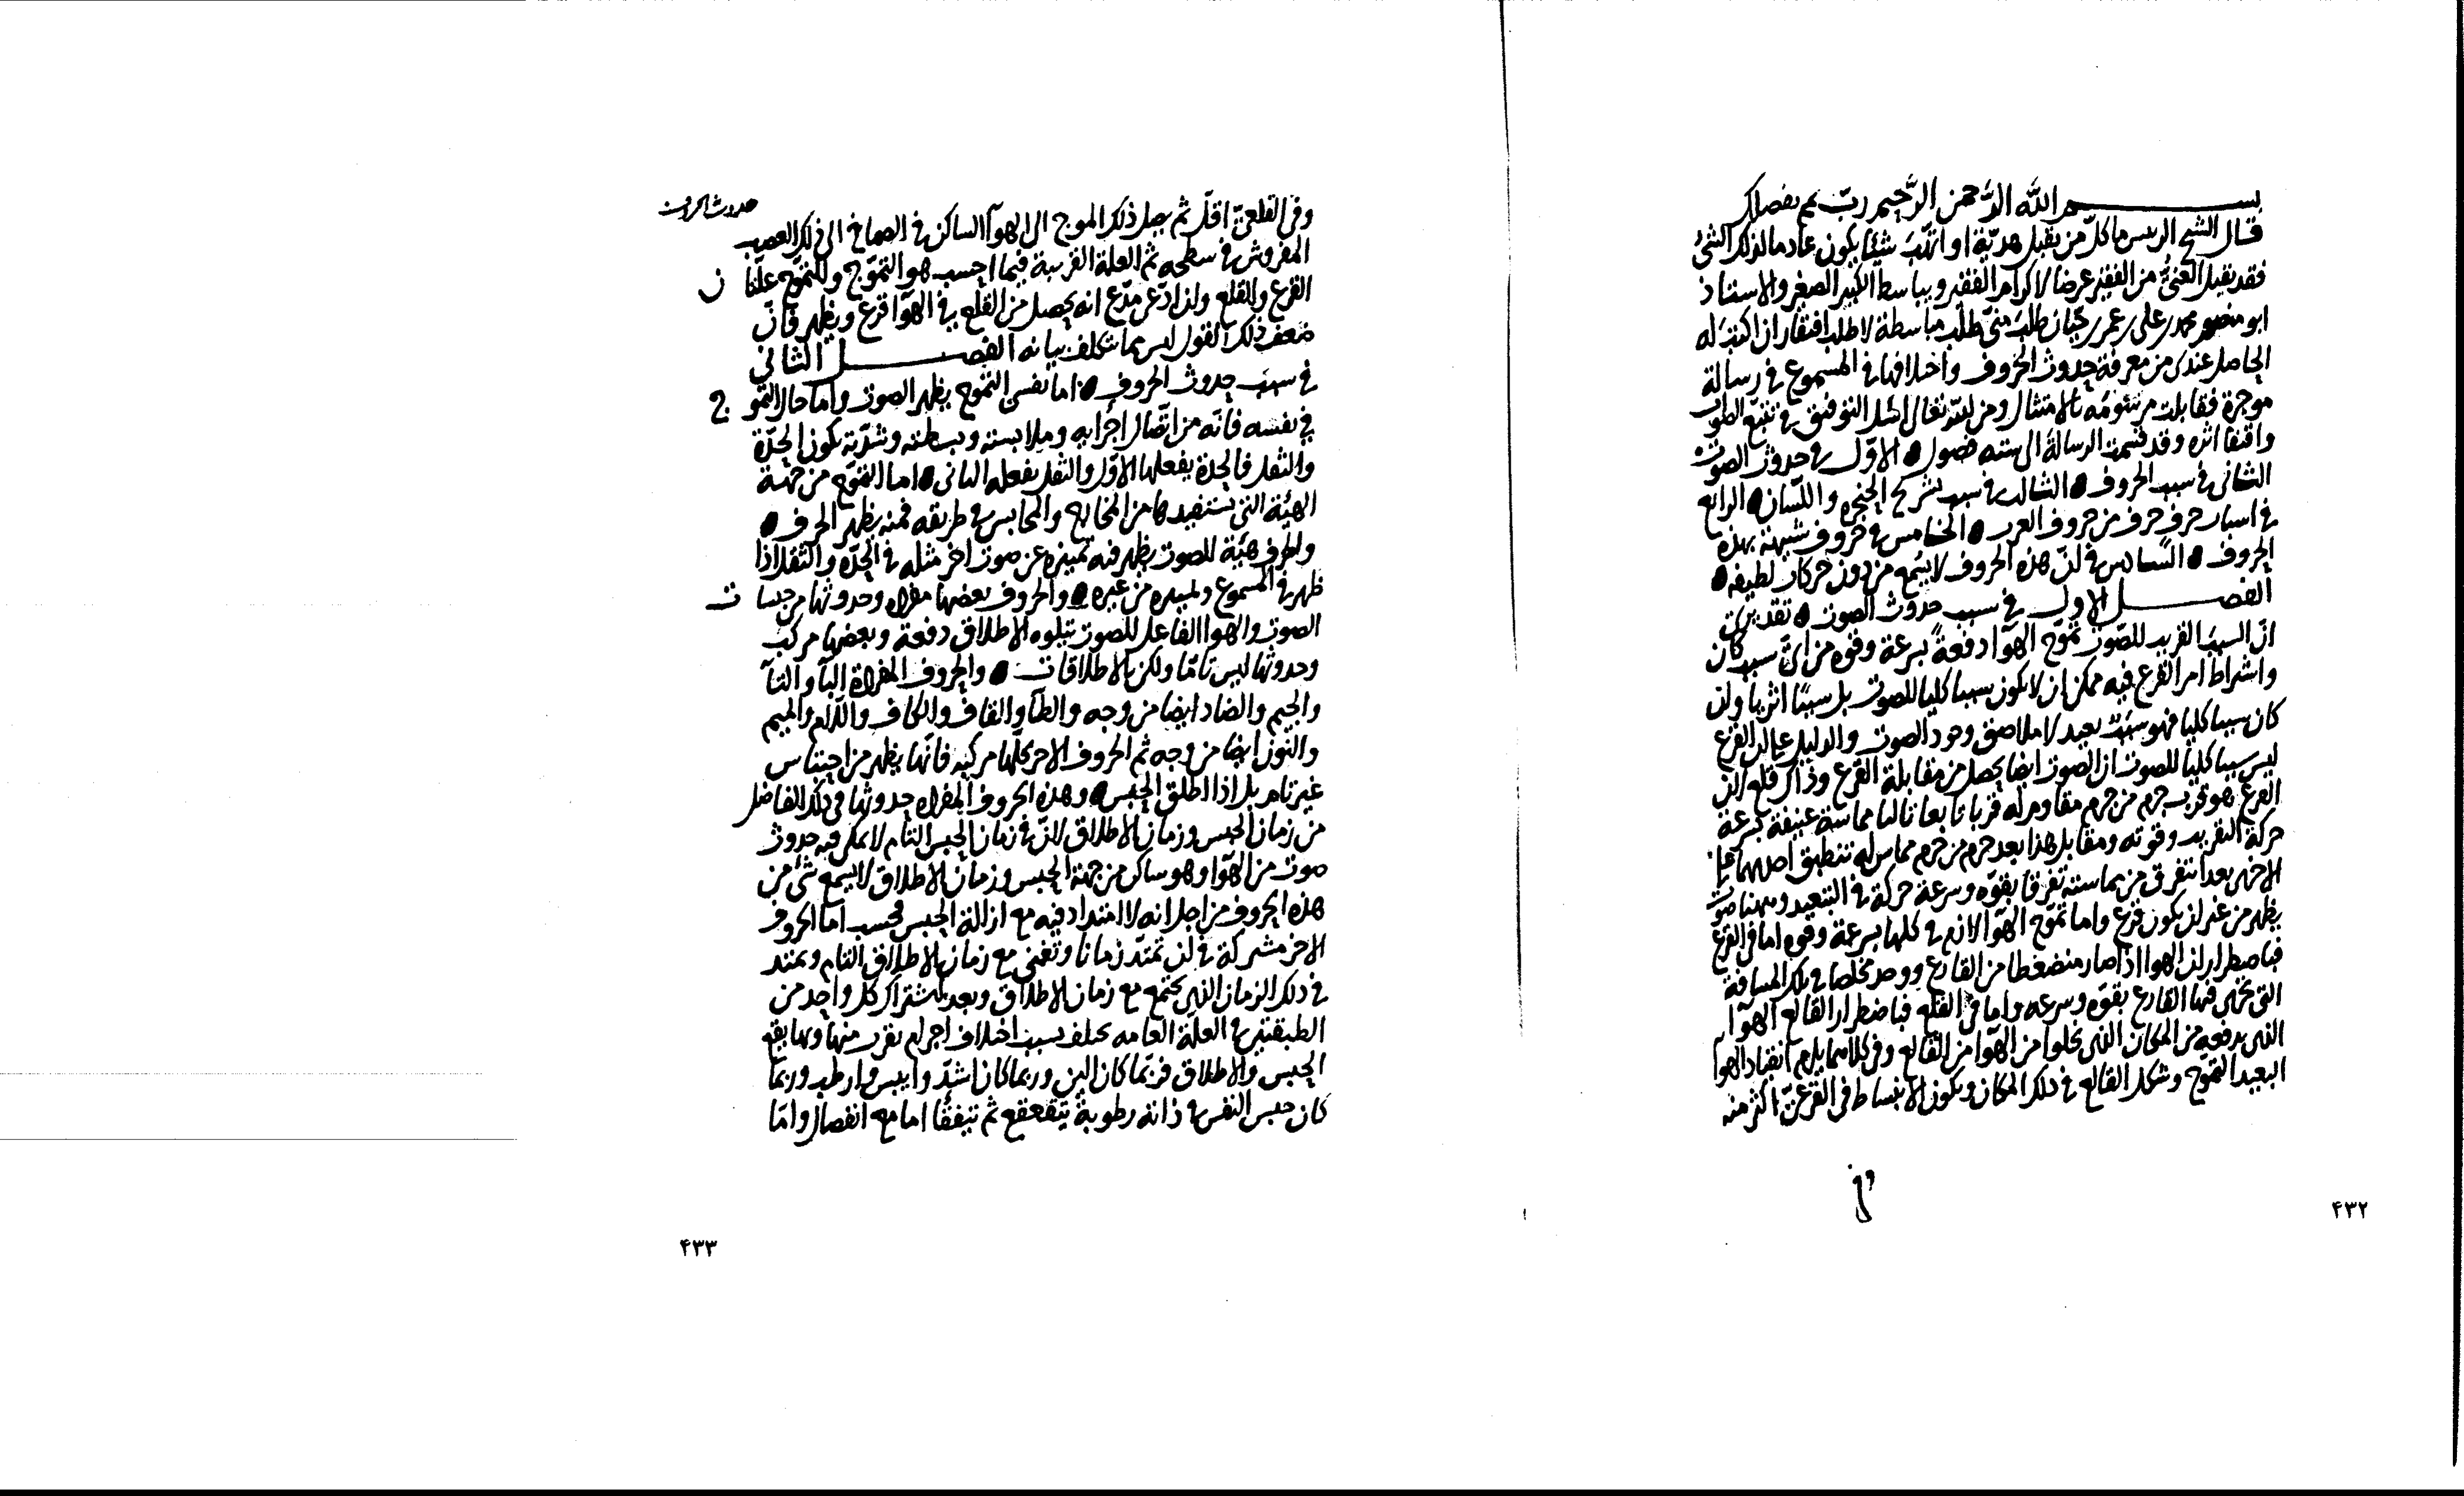 بسم الله الرحمن الرحيم رب تمم بفضلك
قال الشيخ الرييس ما كل من يقبل هدية او اتهب شيئا يكون عادما لذلك الشئ
فقد يقبل الغنى من الفقير عرضا لاكرام الفقير ويباسط الكبير الصغير والاستاذ
ابو منصور محمد بن على بن عمر بن خيان طلب منى طلب مباسطة لا طلب افتقار ان اكتب له
الحاصل عندى من معرفة حدوث الحروف واختلافها فى المسموع فى رسالة
موجزة فقابلت مرسومه بالامتثال ومن الله تعالى اسل التوفيق فى تتبع الصواب
واقتفا اثره وقد قسمت الرسالة الى ستة فصول الاول فى حدوث الصوت
الثانى فى سبب الحروف الثالث فى سبب تشريح الحنجره واللسان الرابع
فى اسباب حرف حرف من حروف العرب الخامس فى حروف شبيهة بهذه
الحروف السادس فى ان هذه الحروف لا يسمع من دون حركات لطيفه
الفصل الاول فى سبب حدوث الصوت
ان السبب القريب للصوت تموج الهوآ دفعة بسرعة وقوه من اى سبب كان
واشراط امر القرع فيه ممكن ان لا يكون سببا كليا للصوت بل سببا اثريا وان
كان سببا كليا فهو سبب بعيد لا ملاصق وجود الصوت والدليل على ان القرع
ليس سببا كليا للصوت ان الصوت ايضا يحصل من مقابلة القرع وذاك قلع لان
القرع هو تقرب جرم من جرم مقاوم له قربا تابعا تاليا مماسة عنيفة بسرعة
حركة التقريب وقوته ومقابل هذا بعد جرم من جرم مماس له تنطبق احدهما على
الاخر بعدا تتفرق من مماسته تفرقا بقوه وسرعة حركة فى التبعيد ومنها صوت
يظهر من غير ان يكون قرع واما تموج الهوآ لازم فى كلها بسرعة وقوه اما فى القرع
فباضطرار ان الهوا اذا صار منضغطا من القارع ووجد مخلصا فى تلك المسافة
التى تحرك فيها القارع بقوه وسرعه واما فى القلع فباضطرار القالع الهوآ
الذى يدفعه من المكان الذى يخلوا من الهوآ من القالع وفى كلاهما يلزم انقياد الهوآ
البعيد التموج وشكل القالع فى ذلك المكان ويكون الانبساط فى القرعى اكثر منه
وفى
۴۳۲
حدوث الحروف
وفى القلعى اقل ثم يصل ذلك الموج الى الهوآ الساكن فى الصماخ الى ذلك العصب
المفروش فى سطحه ثم العلة القريبة فيما احسب هو التموج وللتموج علتان
القرع والقلع وان ادعى مدع انه يحصل من القلع فى الهوآ قرع ويظهر فان
ضعف ذلك القول ليس مما تتكلف بيانه الفصل الثانى
فى سبب حدوث الحروف اما نفس التموج يظهر الصوت واما حال التموج
فى نفسه فانه من اتصال اجزايه وملابسته وبسطته وشدته تكون الحدة
والثقل فالحدة يفعلها الاول والثقل يفعله الثانى اما التموج من جهة
الهيئة التى تستفيدها من المخارج والمحابس فى طريقه فمنه يظهر الحرف
والحرف هيئة للصوت يظهر فيه تميزه عن صوت اخر مثله فى الحدة والثقل اذا
ظهر فى المسموع وتميزه من غيره والحروف بعضها مفرده وحدوثها من حبسات
الصوت والهوا الفاعل للصوت يتلوه الاطلاق دفعة وبعضها مركب
وحدوثها ليس تاما ولكن بالاطلاقات والحروف المفردة البآ والتآ
والجيم والضاد ايضا من وجه والطآ والقاف والكاف واللام والميم
والنون ايضا من وجه ثم الحروف الاخر كلها مركبه فانها يظهر من احتباس
غير تام بل اذا اطلق الحبس وهذه الحروف المفرده حدوثها فى ذلك الفاصل
من زمان الحبس وزمان الاطلاق لان فى زمان الحبس التام لا يمكن فيه حدوث
صوت من الهوآ وهو ساكن من جهة الحبس وزمان الاطلاق لا يسمع شئ من
هذه الحروف من اجل انه لا امتداد فيه مع ازالة الحبس فحسب اما الحروف
الاخر مشتركة فى ان تمتد زمانا وتفنى مع زمان الاطلاق التام ويمتد
فى ذلك الزمان الذى يجتمع مع زمان الاطلاق وبعد اشتراك كل واحد من
الطبقتين فى العلة العامه تختلف بسبب اختلاف اجرام يقرب منها وبها يقع
الحبس والاطلاق فربما كان الين وربما كان اشد وايبس وارطب وربما
كان حبس النفس فى ذاته رطوبة يتقعقع ثم تتفقأ اما مع انفصال واما
۴۳۳